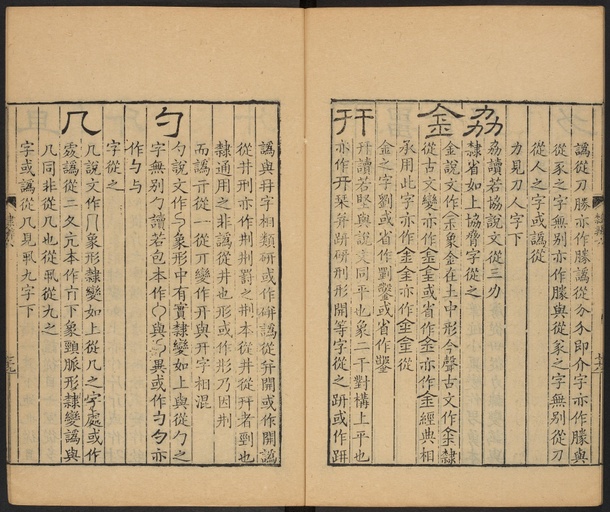 譌從刀勝亦作勝譌從分分即介字亦作勝與
從豕之字無别亦作勝與從豕之字無别從刀
從人之字或譌從
力見刀人字下
劦
劦讀若協說文從三力
隸省如上協脅字從之
金
金說文作金象金在土中形今聲古文作金隸
從古文變亦作金金或省作金亦作金經典相
承用此字亦作金金亦作金金從
金之字劉或省作劉鑿或省作鑿
幵
幵讀若堅與說文同平也象二干對構上平也
亦作开栞并趼研刑形開等字從之趼或作趼
譌與幵字相類研或作硏譌從并開或作開譌
從井刑亦作荆荆罰之荆本從井從幵者剄也
隸通用之非譌從井也形或作形乃因荆
而譌亓從一從丌變作开與幵字相混
勺
勺說文作勺象形中有實隸變如上與從勹之
字無别勹讀若包本作勹與勺異或作勺勺亦
作勺与
字從之
几
几說文作几象形隸變如上從几之字處或作
䖏譌從二夂亢本作亢下象頸脈形隸變譌與
几同非從几也從凮從九之
字或譌從几見凮九字下